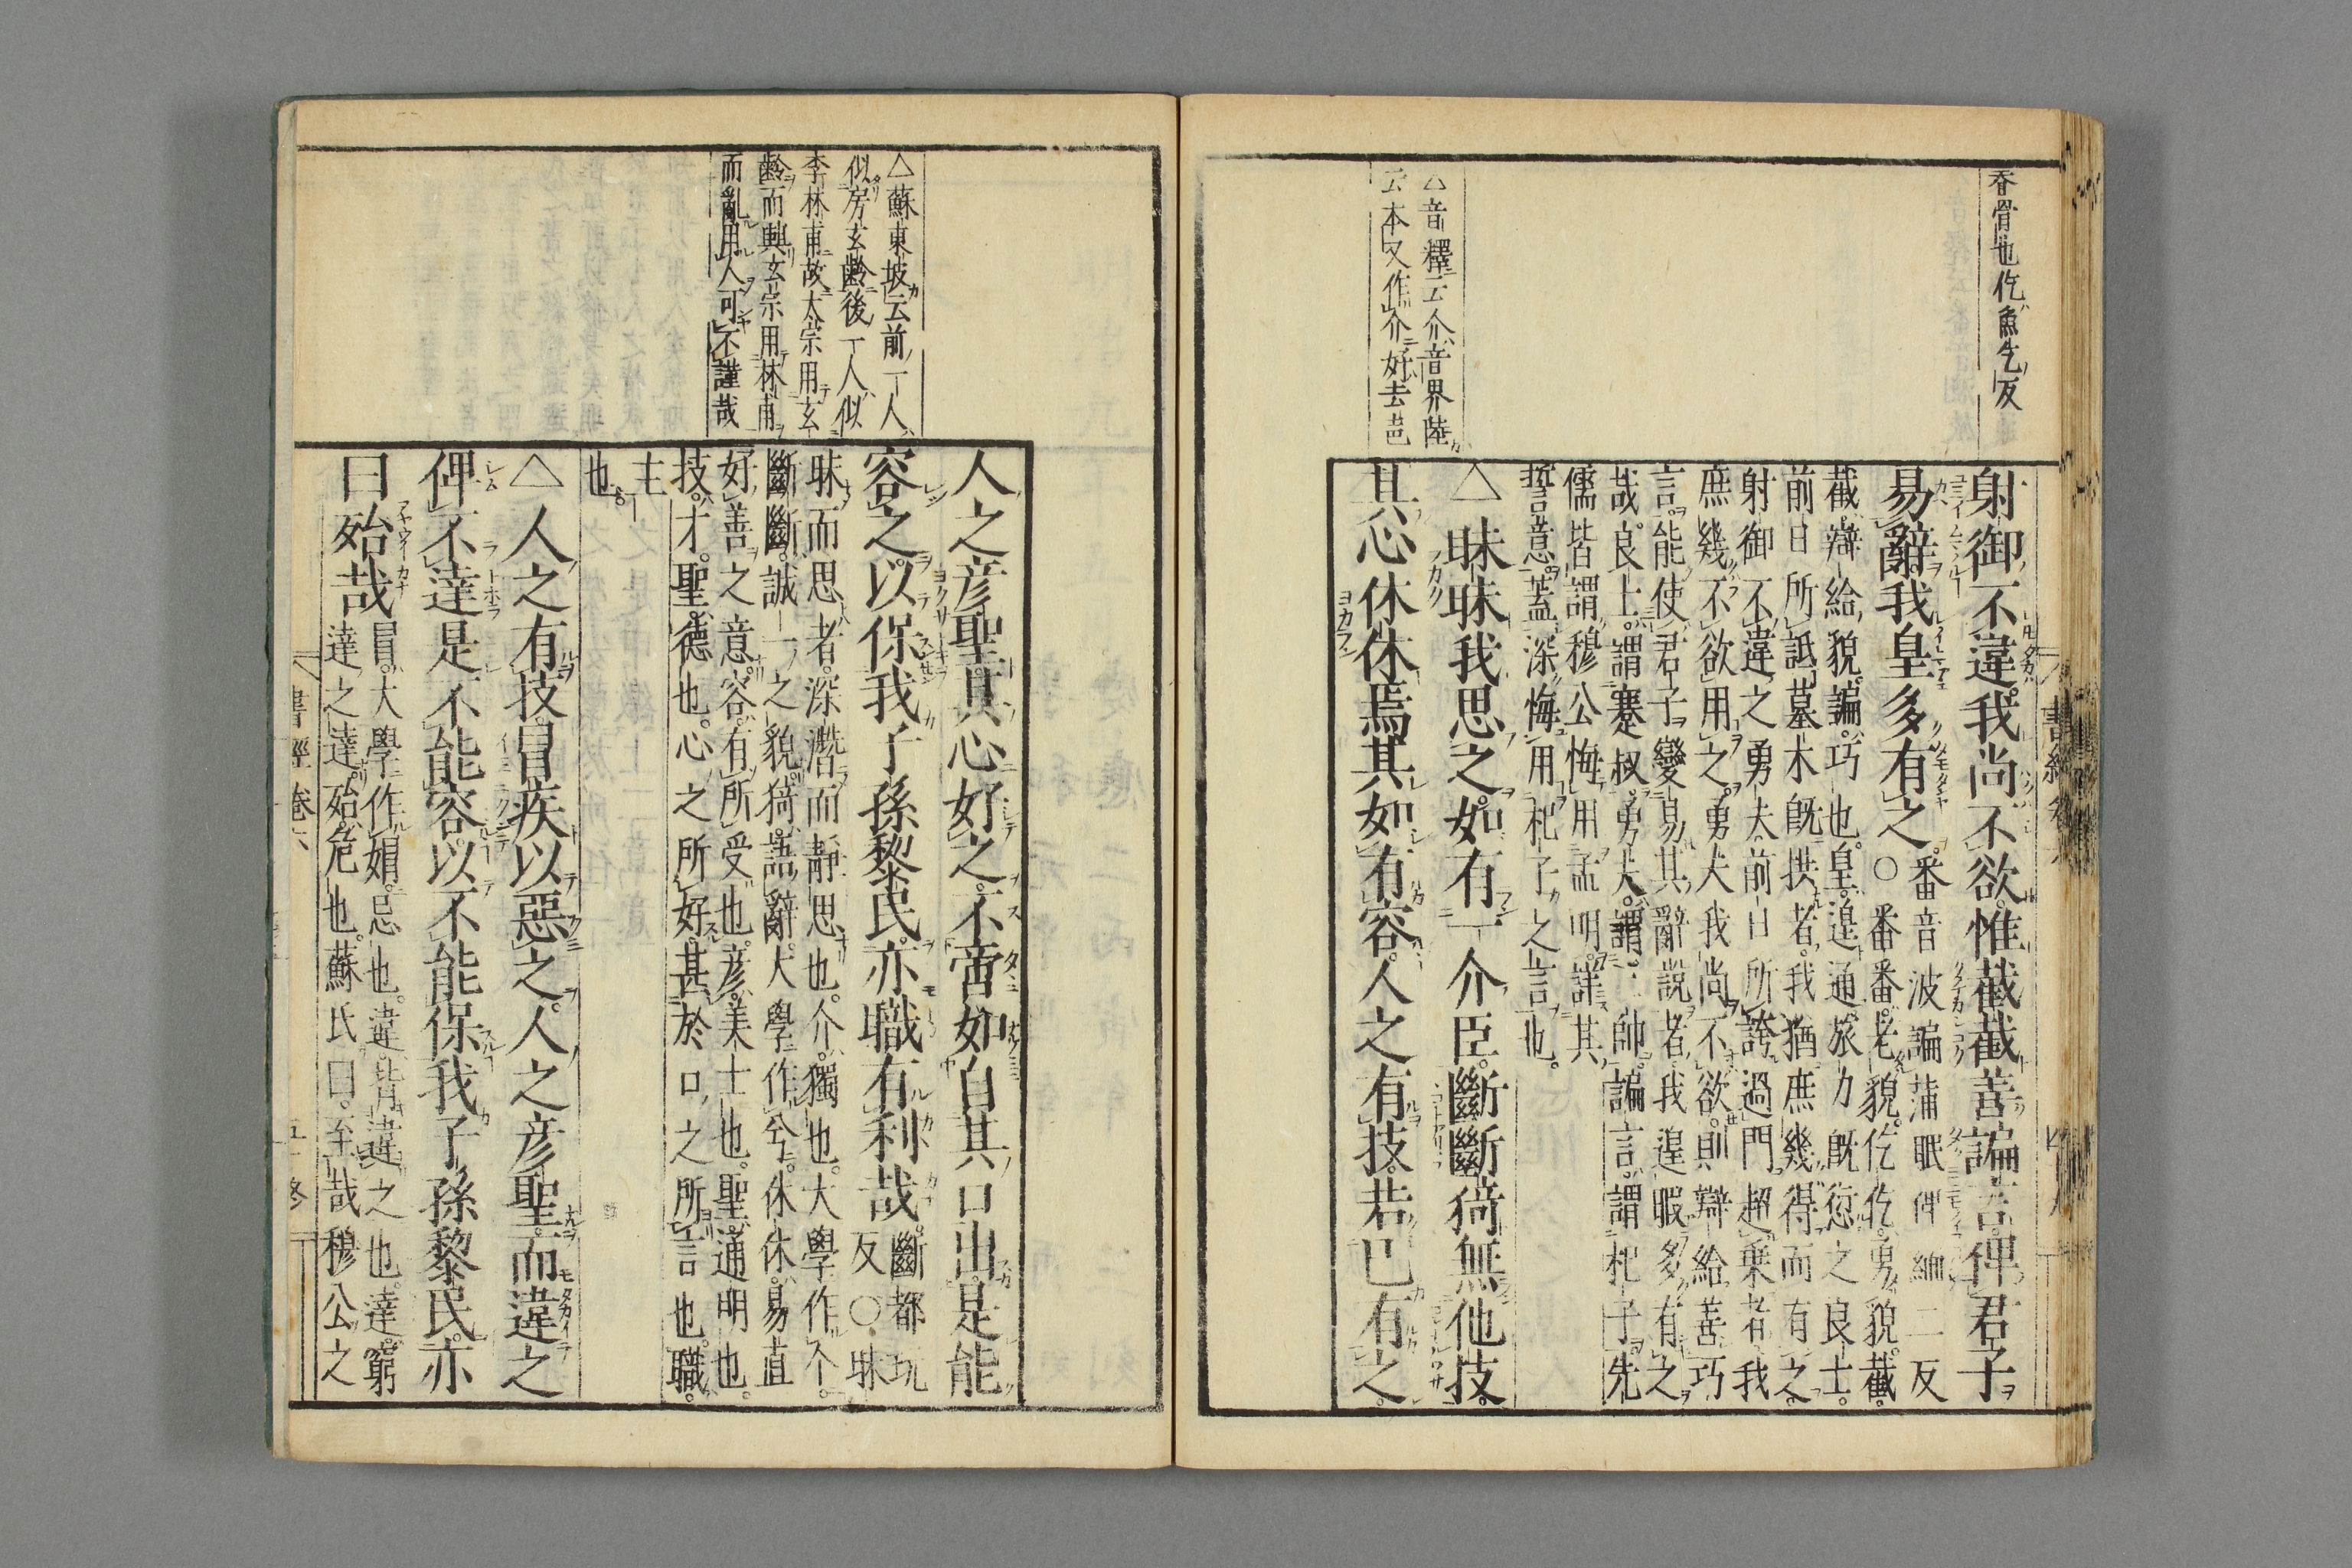 春骨也仡魚乞反
射御不違我尚不欲惟截截善諞言俾君子
易辭我皇多有之
番音波諞蒲眠俾緬二反
○番番老貌仡仡勇貌截
截辯給貌諞巧也皇遑通旅力既愆之良士
前日所詆墓木既拱者我猶庶幾得而有之
射御不違之勇夫前日所誇過門超乗者我
庶幾不欲用之勇夫我尚不欲則辯給善巧
言能使君子變易其辭說者我遑暇多有之
哉良士謂蹇叔勇夫謂三帥諞言謂杞子先
儒皆謂穆公悔用孟明詳其
誓意蓋深悔用杞子之言也
△音釋云介音界陸
云本又作介好去声
△昧昧我思之如有一介臣斷斷猗無他技
其心休休焉其如有容人之有技若已有之
△蘇東坡云前一人
似房玄齡後一人似
李林甫故太宗用玄
齡而興玄宗用林甫
而亂用人可不謹哉
人之彦聖其心好之不啻如自其口出是能
容之以保我子孫黎民亦職有利哉
斷都玩
反○昧
昧而思者深潛而靜思也介獨也大學作个
斷斷誠一之貌猗語辭大學作兮休休易直
好善之意容有所受也彦美士也聖通明也
技才聖德也心之所好甚於口之所言也職
主
也
△人之有技冒疾以惡之人之彦聖而違之
俾不達是不能容以不能保我子孫黎民亦
曰殆哉
冒大學作媢忌也違背違之也達窮
達之達殆危也蘇氏曰至哉穆公之
書經卷六